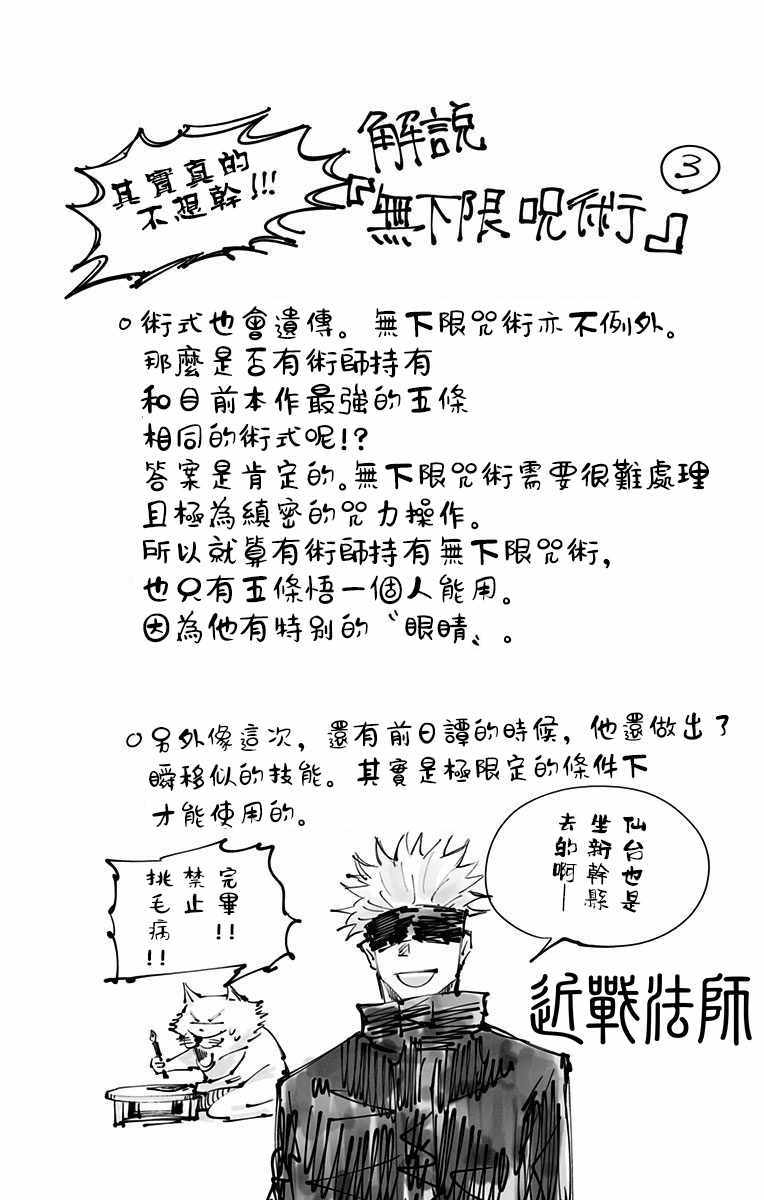 其實真的
不想幹!!!
解說
『無下限呪術』
3
○術式也會遺傳。無下限咒術亦不例外。
那麼是否有術師持有
和目前本作最強的五條
相同的術式呢!?
答案是肯定的。無下限咒術需要很難處理
且極為縝密的咒力操作。
所以就算有術師持有無下限咒術,
也只有五條悟一個人能用。
因為他有特別的〝眼睛〟。
○另外像這次,還有前日譚的時候,他還做出了
瞬移似的技能。其實是極限定的條件下
才能使用的。
仙台也是
坐新幹縣
去的啊—
完畢!!
禁止
挑毛病!!
近戰法師